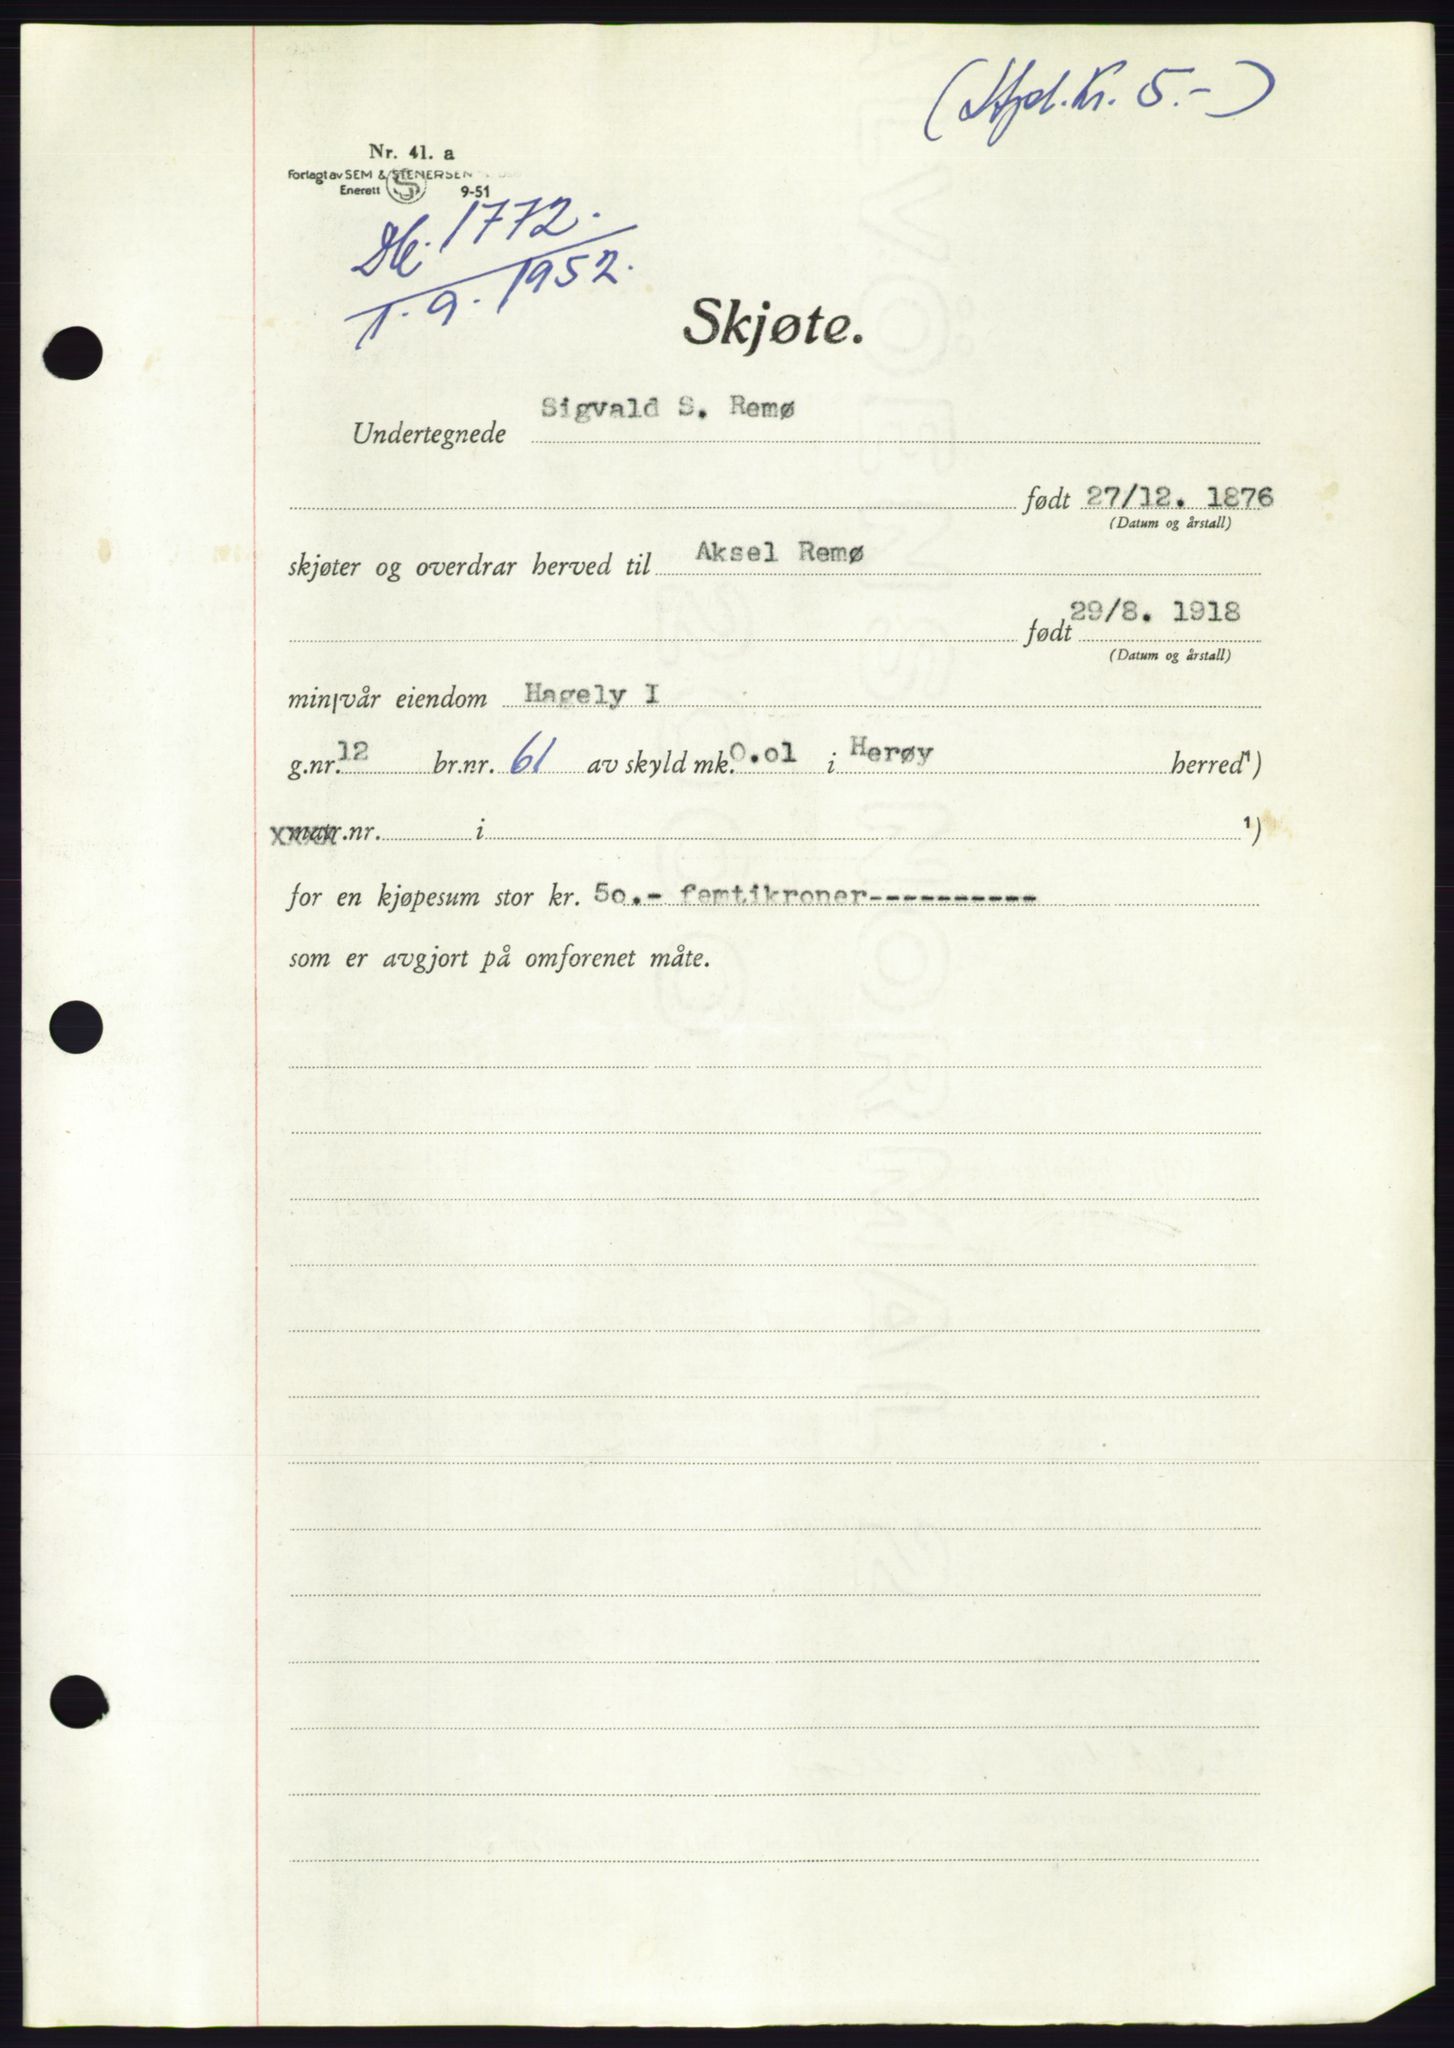 ( Stpl. Kr. 5.- )
Nr. 41. a
Forlagt av SEM & STENERSEN
Enerett 9-51
Db. 1772.
1. 9. 1952.
Skjøte.
Undertegnede Sigvald S. Remø
født 27/12. 1876
(Datum og årstall)
skjøter og overdrar herved til Aksel Remø
født 29/8. 1918
(Datum og årstall)
min/vår eiendom Hagely I
g.nr. 12 br.nr. 61 av skyld mk. 0.01 i Herøy herred ¹)
matr.nr. i ¹)
for en kjøpesum stor kr. 50.- femtikroner----------
som er avgjort på omforenet måte.